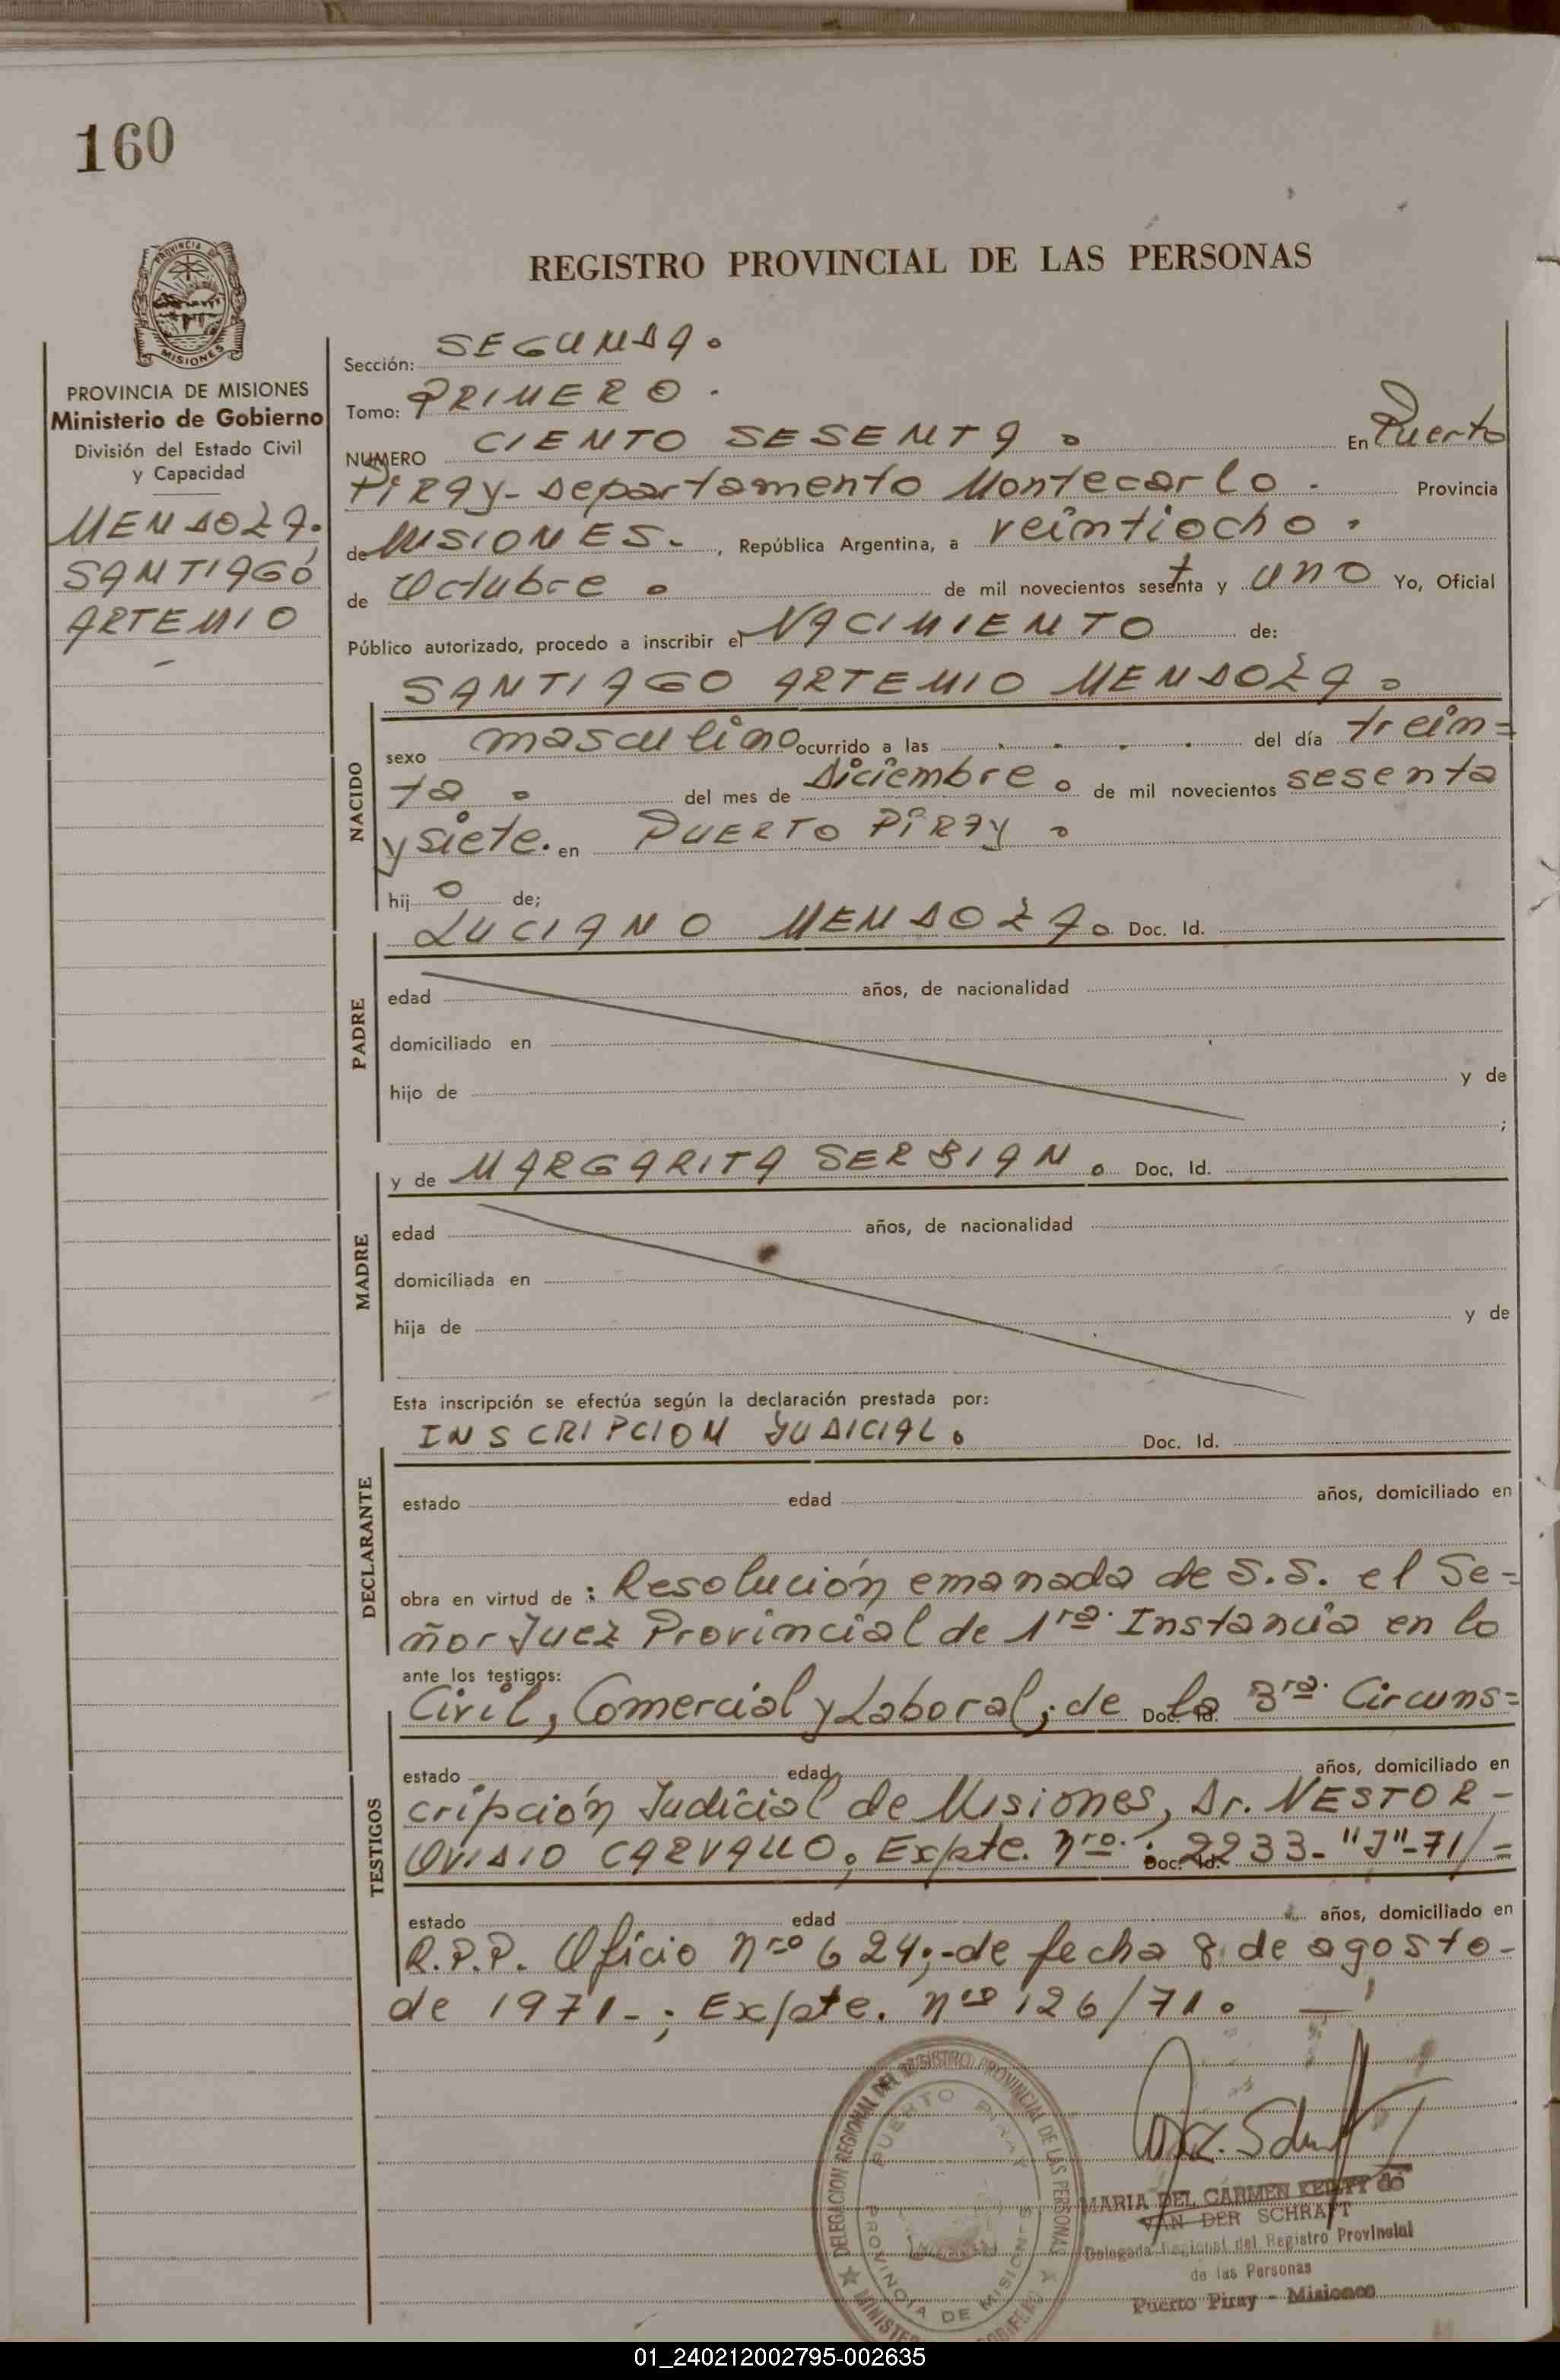 160
PROVINCIA DE
MISIONES
REGISTRO PROVINCIAL DE LAS PERSONAS
PROVINCIA DE MISIONES
Ministerio de Gobierno
División del Estado Civil
y Capacidad
MENDOZA.
SANTIAGO
ARTEMIO
Sección: SEGUNDA.
Tomo: PRIMERO.
NUMERO CIENTO SESENTA. En Puerto
PiRAy - Departamento Montecarlo. Provincia
de MISIONES. , República Argentina, a veintiocho.
de Octubre. de mil novecientos setenta y uno Yo, Oficial
Público autorizado, procedo a inscribir el NACIMIENTO de:
SANTIAGO ARTEMIO MENDOZA.
NACIDO
sexo masculino ocurrido a las . . . . del día trein=
ta. del mes de diciembre. de mil novecientos sesenta
y siete. en PUERTO PiRAy.
hij o de;
PADRE
LUCIANO MENDOZA. Doc. Id.
edad años, de nacionalidad
domiciliado en
hijo de y de
;
MADRE
y de MARGARITA SERBIAN. Doc. Id.
edad años, de nacionalidad
domiciliada en
hija de y de
Esta inscripción se efectúa según la declaración prestada por:
DECLARANTE
INSCRIPCION JUDICIAL. Doc. Id.
estado edad años, domiciliado en
obra en virtud de : Resolución emanada de S.S. el Se=
ñor Juez Provincial de 1ra. Instancia en lo
ante los testigos:
TESTIGOS
Civil, Comercial y Laboral; de la 3ra. Circuns=
Doc. Id.
estado edad años, domiciliado en
cripción Judicial de Misiones, Dr. NESTOR -
OVIDIO CARVALLO. Expte. nro.: 2233-"J"-71/=
Doc. Id.
estado edad años, domiciliado en
R.P.P. Oficio nro 624;- de fecha 8 de agosto -
de 1971-; Expte. nro 126/71.
DELEGACION REGIONAL DEL REGISTRO PROVINCIAL DE LAS PERSONAS
PUERTO PIRAY
PROVINCIA DE MISIONES
MARIA DEL CARMEN de
VAN DER SCHRAFT
Delegada Regional del Registro Provincial
de las Personas
Puerto Piray - Misiones
01_240212002795-002635